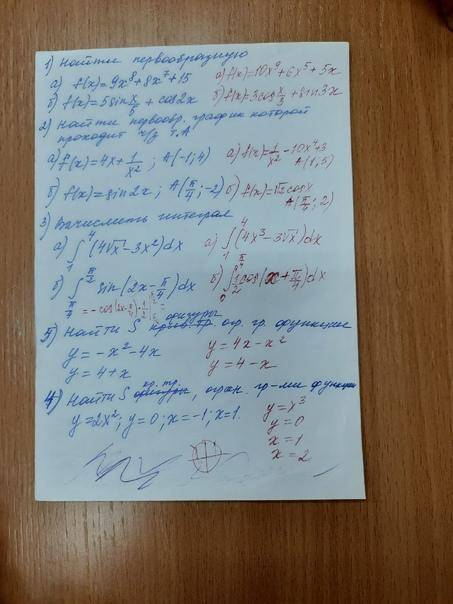 1) Найти первообразную
а) f(x)=9x⁸+8x⁷+15 а) f(x)=10x⁹+6x⁵+5x
б) f(x)=5sin x/5 + cos2x б) f(x)=3cos x/3 + sin3x
2) Найти первообр. график которой
проходит ч/з т.А
а) f(x)=4x+1/x²; A(-1;4) а) f(x)=1/x²-10x⁴+3 A(1;5)
б) f(x)=sin2x; A(π/4;-2) б) f(x)=√2cosx A(π/4;2)
3) Вычислить интеграл
а) ∫₁⁴(4√x-3x²)dx а) ∫₁⁴(4x³-3√x)dx
б) ∫ sin(2x-π/4)dx б) ∫ cos(x+π/4)dx
= -cos(2x-π/4)·1/2
фигуры
5) Найти S крив.тр. огр. гр. функции
y=-x²-4x y=4x-x²
y=4+x y=4-x
кр. тр.
4) Найти S фигуры, огран. гр-ми функции
y=2x²; y=0; x=-1; x=1. y=x³
y=0
x=1
x=2